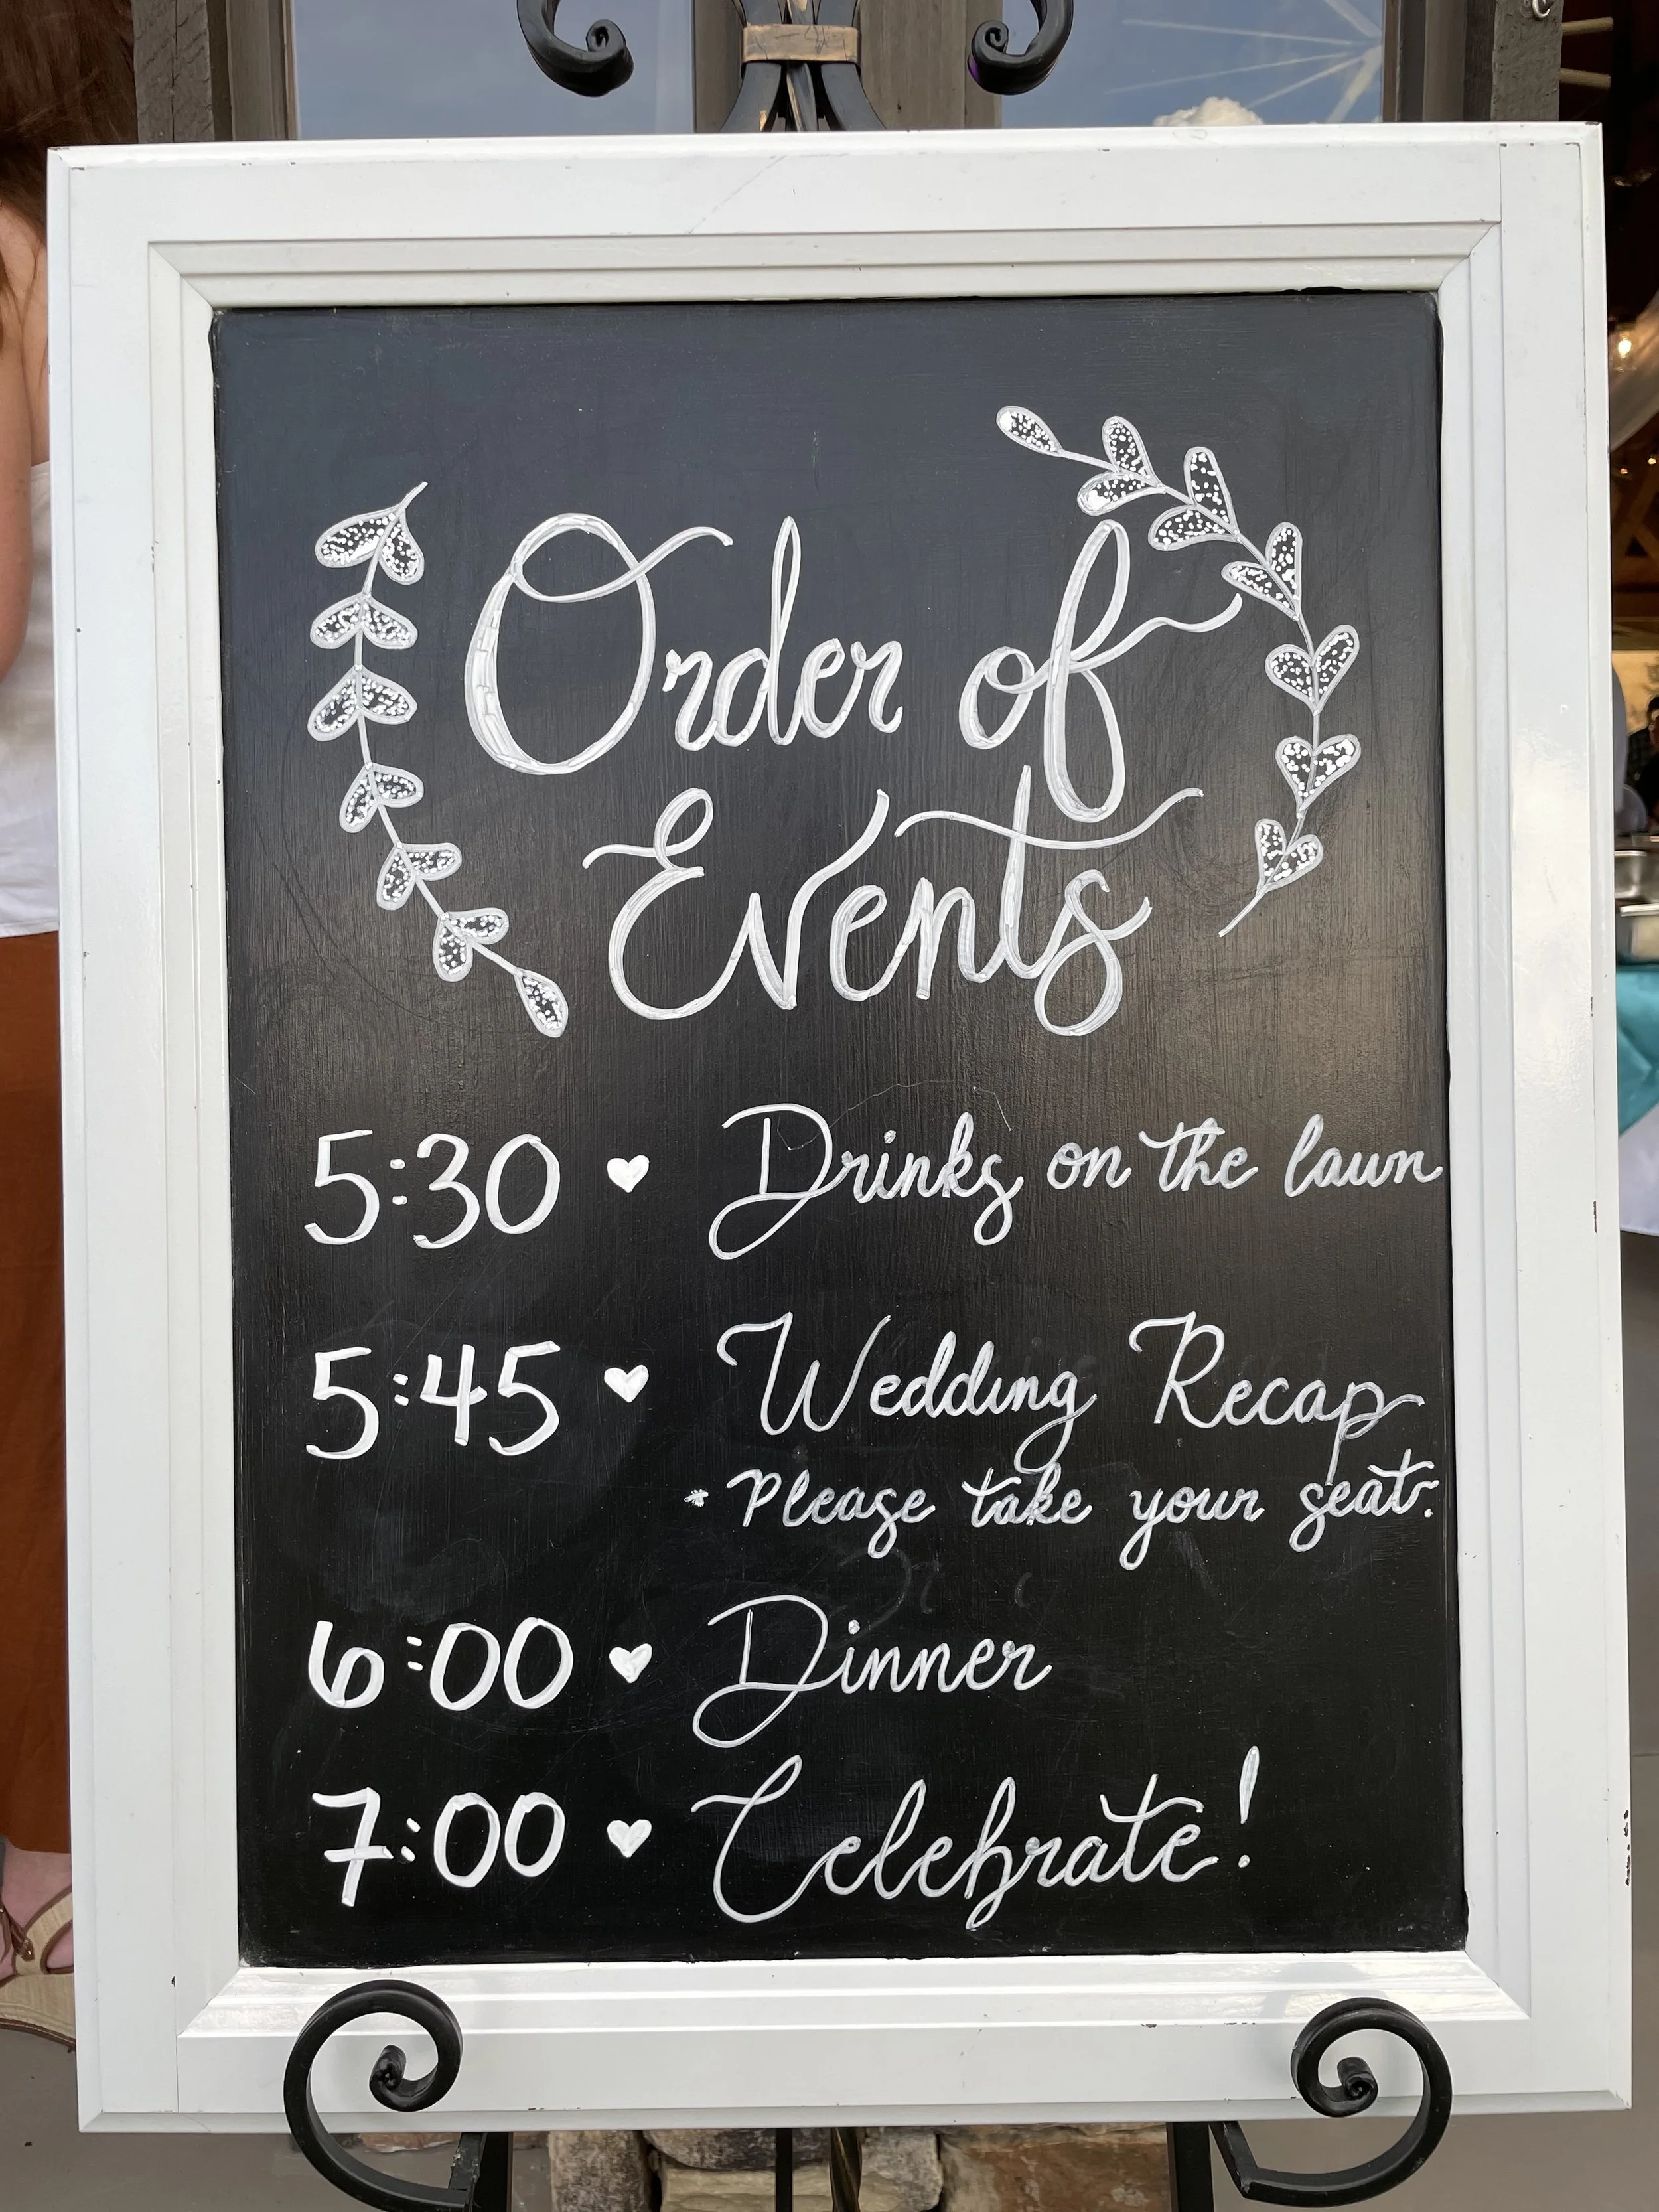 Order of
Events
5:30 ♥ Drinks on the lawn
5:45 ♥ Wedding Recap
* Please take your seat.
6:00 ♥ Dinner
7:00 ♥ Celebrate!